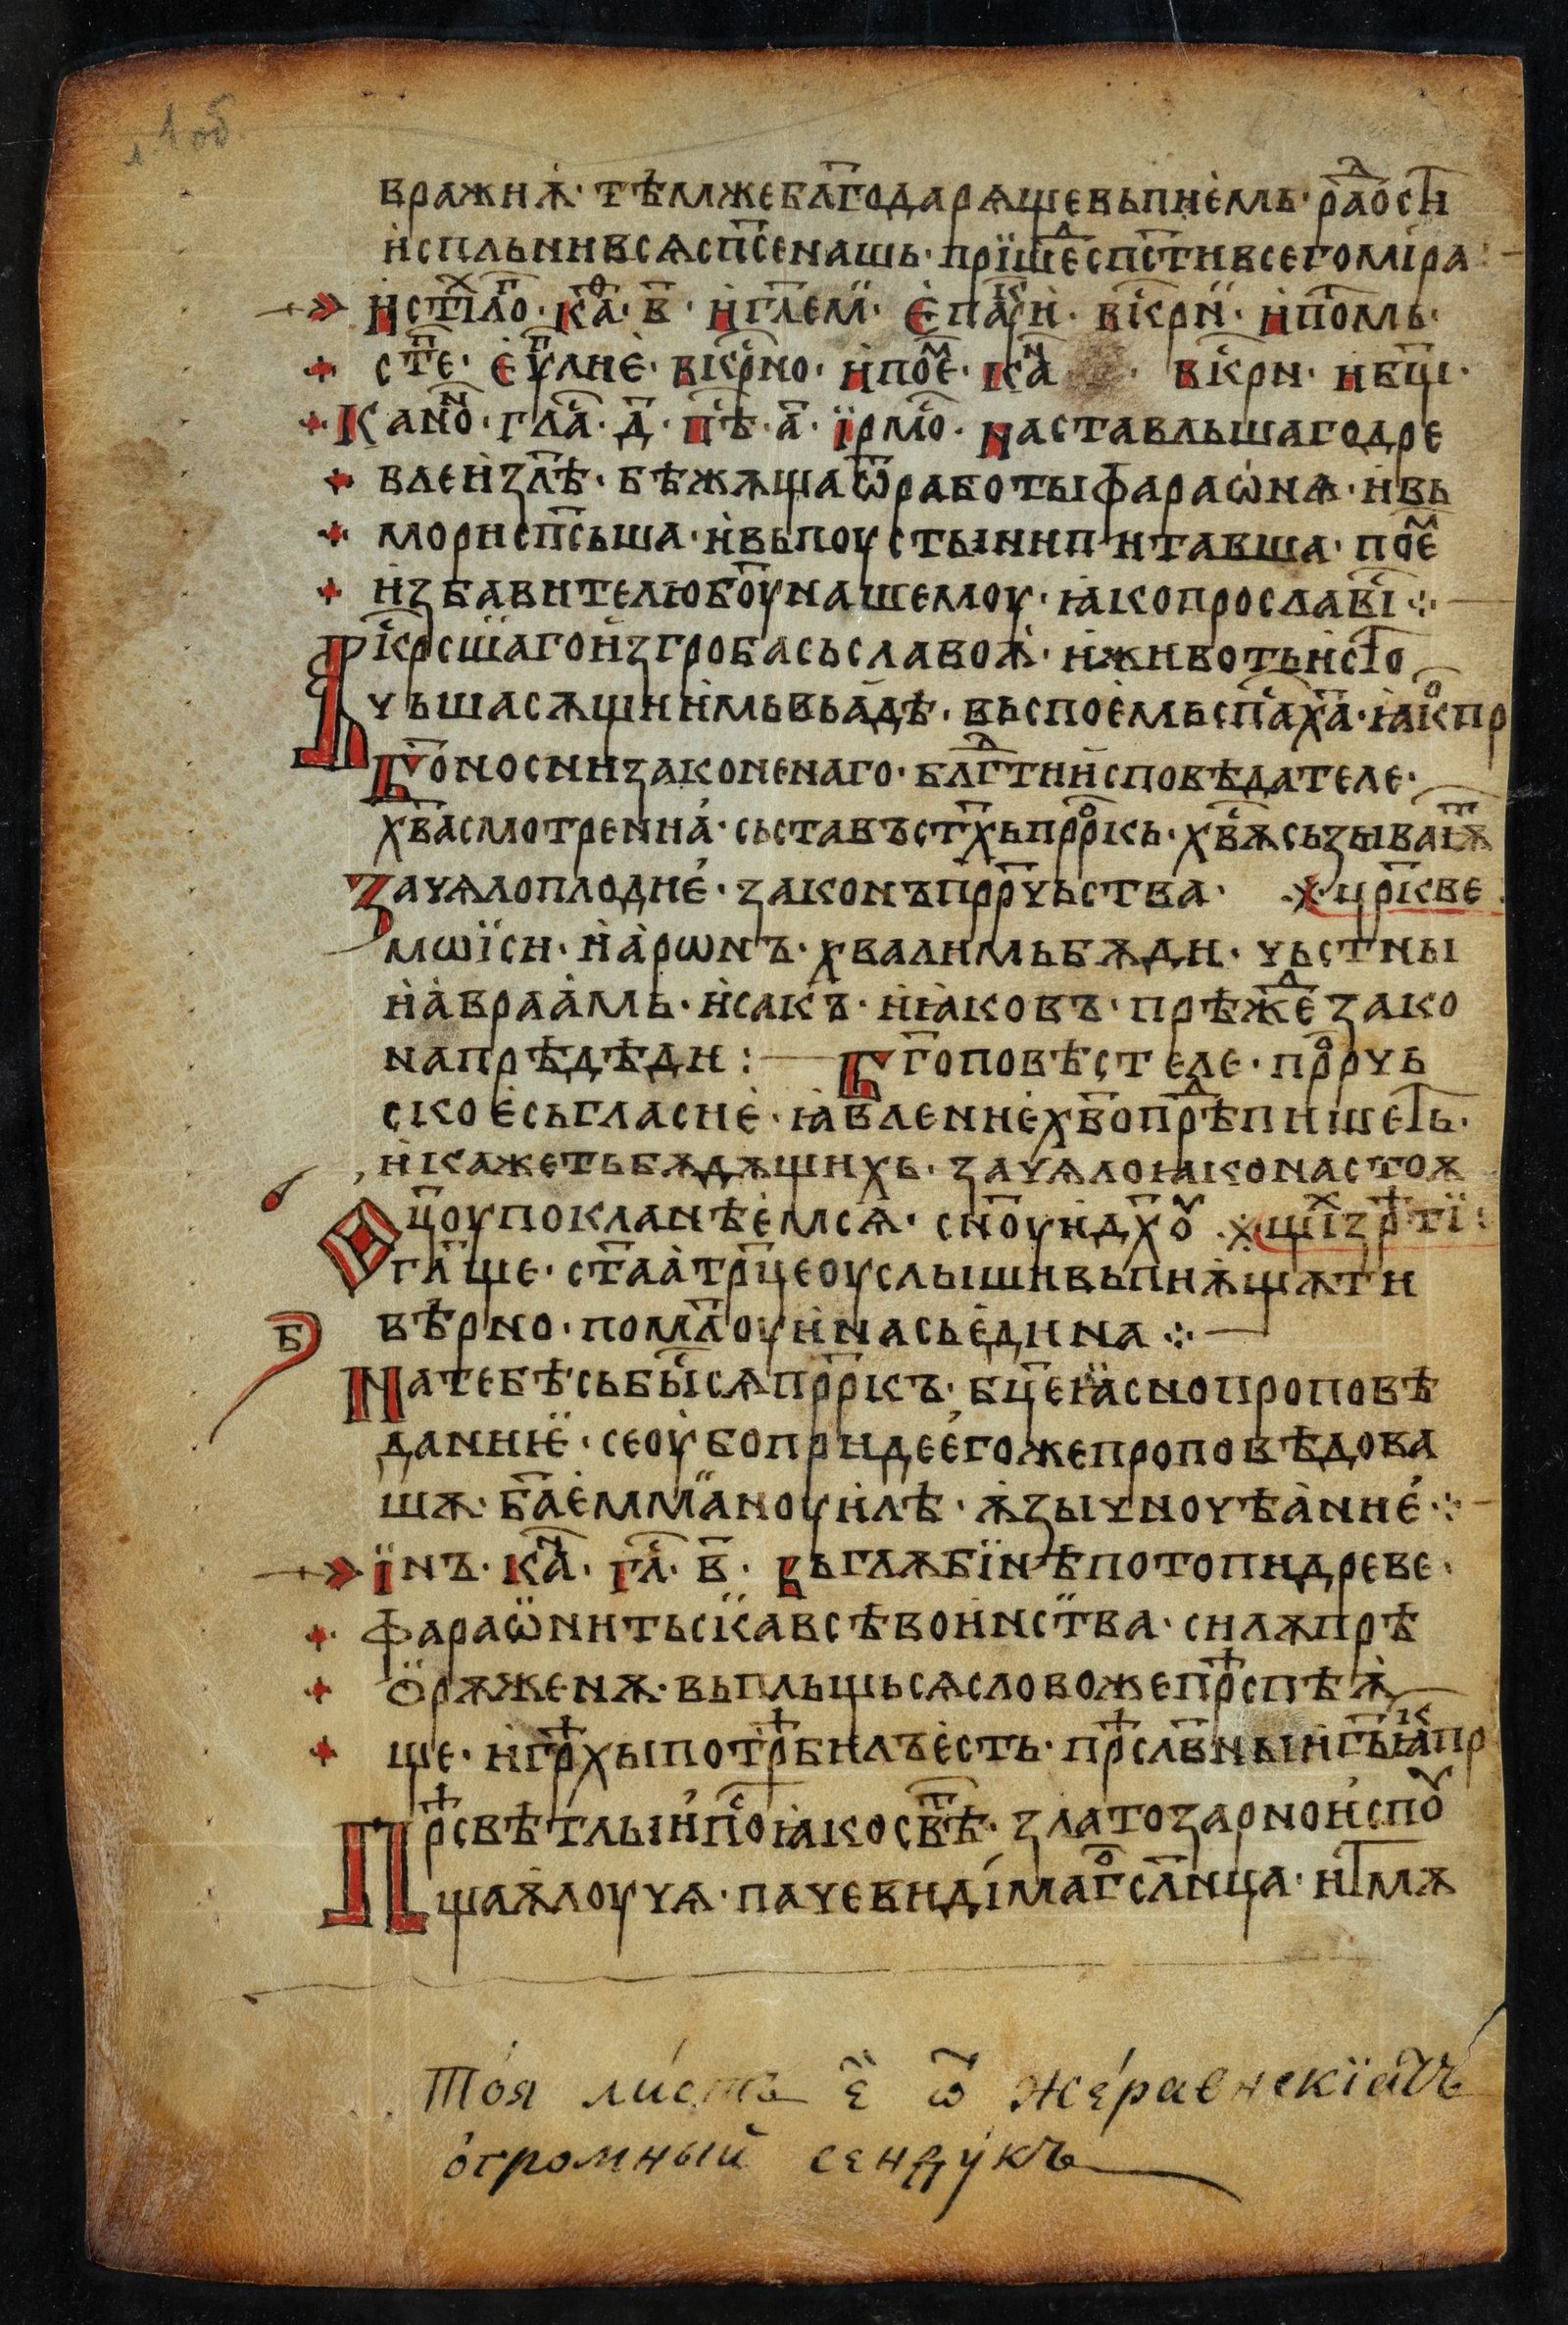 л 1 об
вражиѧ҅· тѣмжебл҃годарѧщевьпиемь· раⷣости
испльнивсѧсп҃сенашь· пріше́ⷣсп҃стивсегоміра:
истⷯіло·каⷴ·в҃·иглем· ѐпаⷦи·віⷭкри·ипⷭомь·
стⷫе· ѐѵⷫлие·віⷭкрно·ипоⷨе·каⷩ · віⷭкри·иб҃ци·
Каноⷩ·глⷭа·д҃·пⷭѣ·а҃·їрмⷭо·наставльшагодре
влеизлⷧѣ·бѣжѧщаѿработыфараѡнѧ·ивь
морисп҃сьша·ивьпоустынипитавша·поⷨе
избавителюб҃оунашемоу·ꙗкопрославⷭі⁘
Віⷭкрсшїагоизгробасьславоѫ·иживотьисто
чьшасѧщиимьвьадѣ·вьспоемьсп҃ах҃а·ꙗкⷪпр
Бг҃оносниизаконенаго·блг҃ⷣтииисповѣдателе·
хв҃асмотренна·съставъст҃хьпрⷪркь·хв҃ѧсьзываиѧ
Зачѧлоплодие·законъпр҃рчьства· ·х·цр҃кве
мѡїси·иарѡнъ·хвалимьбѫди·чьстны
иавраамь·исакъ·иꙗковъ·прѣжⷣезако
напрѣдѣди:— Бг҃оповѣстеле·прⷪрчь
скоесьгласие·ꙗвлениехв҃опрⷣѣпишеть·
икажетьбѫдѫщихь·зачѧлоꙗконастоѫ
Ѻц҃оупокланѣемсѧ·сн҃оуидх҃ѹ ·х·щїⷯзрⷮтї:
гл҃ще·ст҃аатрц҃еоуслышивьпиѫщѫти
вѣрно·помл҃оуинасьедина⁘—
б
Натебѣсьбыⷭсѧпр҃ркъ·бц҃еꙗснопроповѣ
даннїе·сеоубопридеегожепроповѣдова
шѫ·б҃аемманоуилѣ·ѫзычноучѣание·⁘
їнъ·каⷩ·глⷭ·в҃·вьглѫбїнѣпотопидреве·
фараѡнитьскавсѣвоинства·силѫпрѣ
ѻрѫженѫ·вьпльщьсѧсловожепрⷮспѣѫ
ще·игрⷮхыпотрⷮбилъесть·прⷮслв҃ныиг҃ьꙗⷦпр
Прⷮсвѣтлыипⷭоꙗкосвⷮѣ·златозарноиспоѵ
щаѫлоучѧ·пачевидімагⷪсл҃нца·итмѫ
То́я ли́стъ є̃ ѿ же́равнскїатъ
о́громный сендукъ